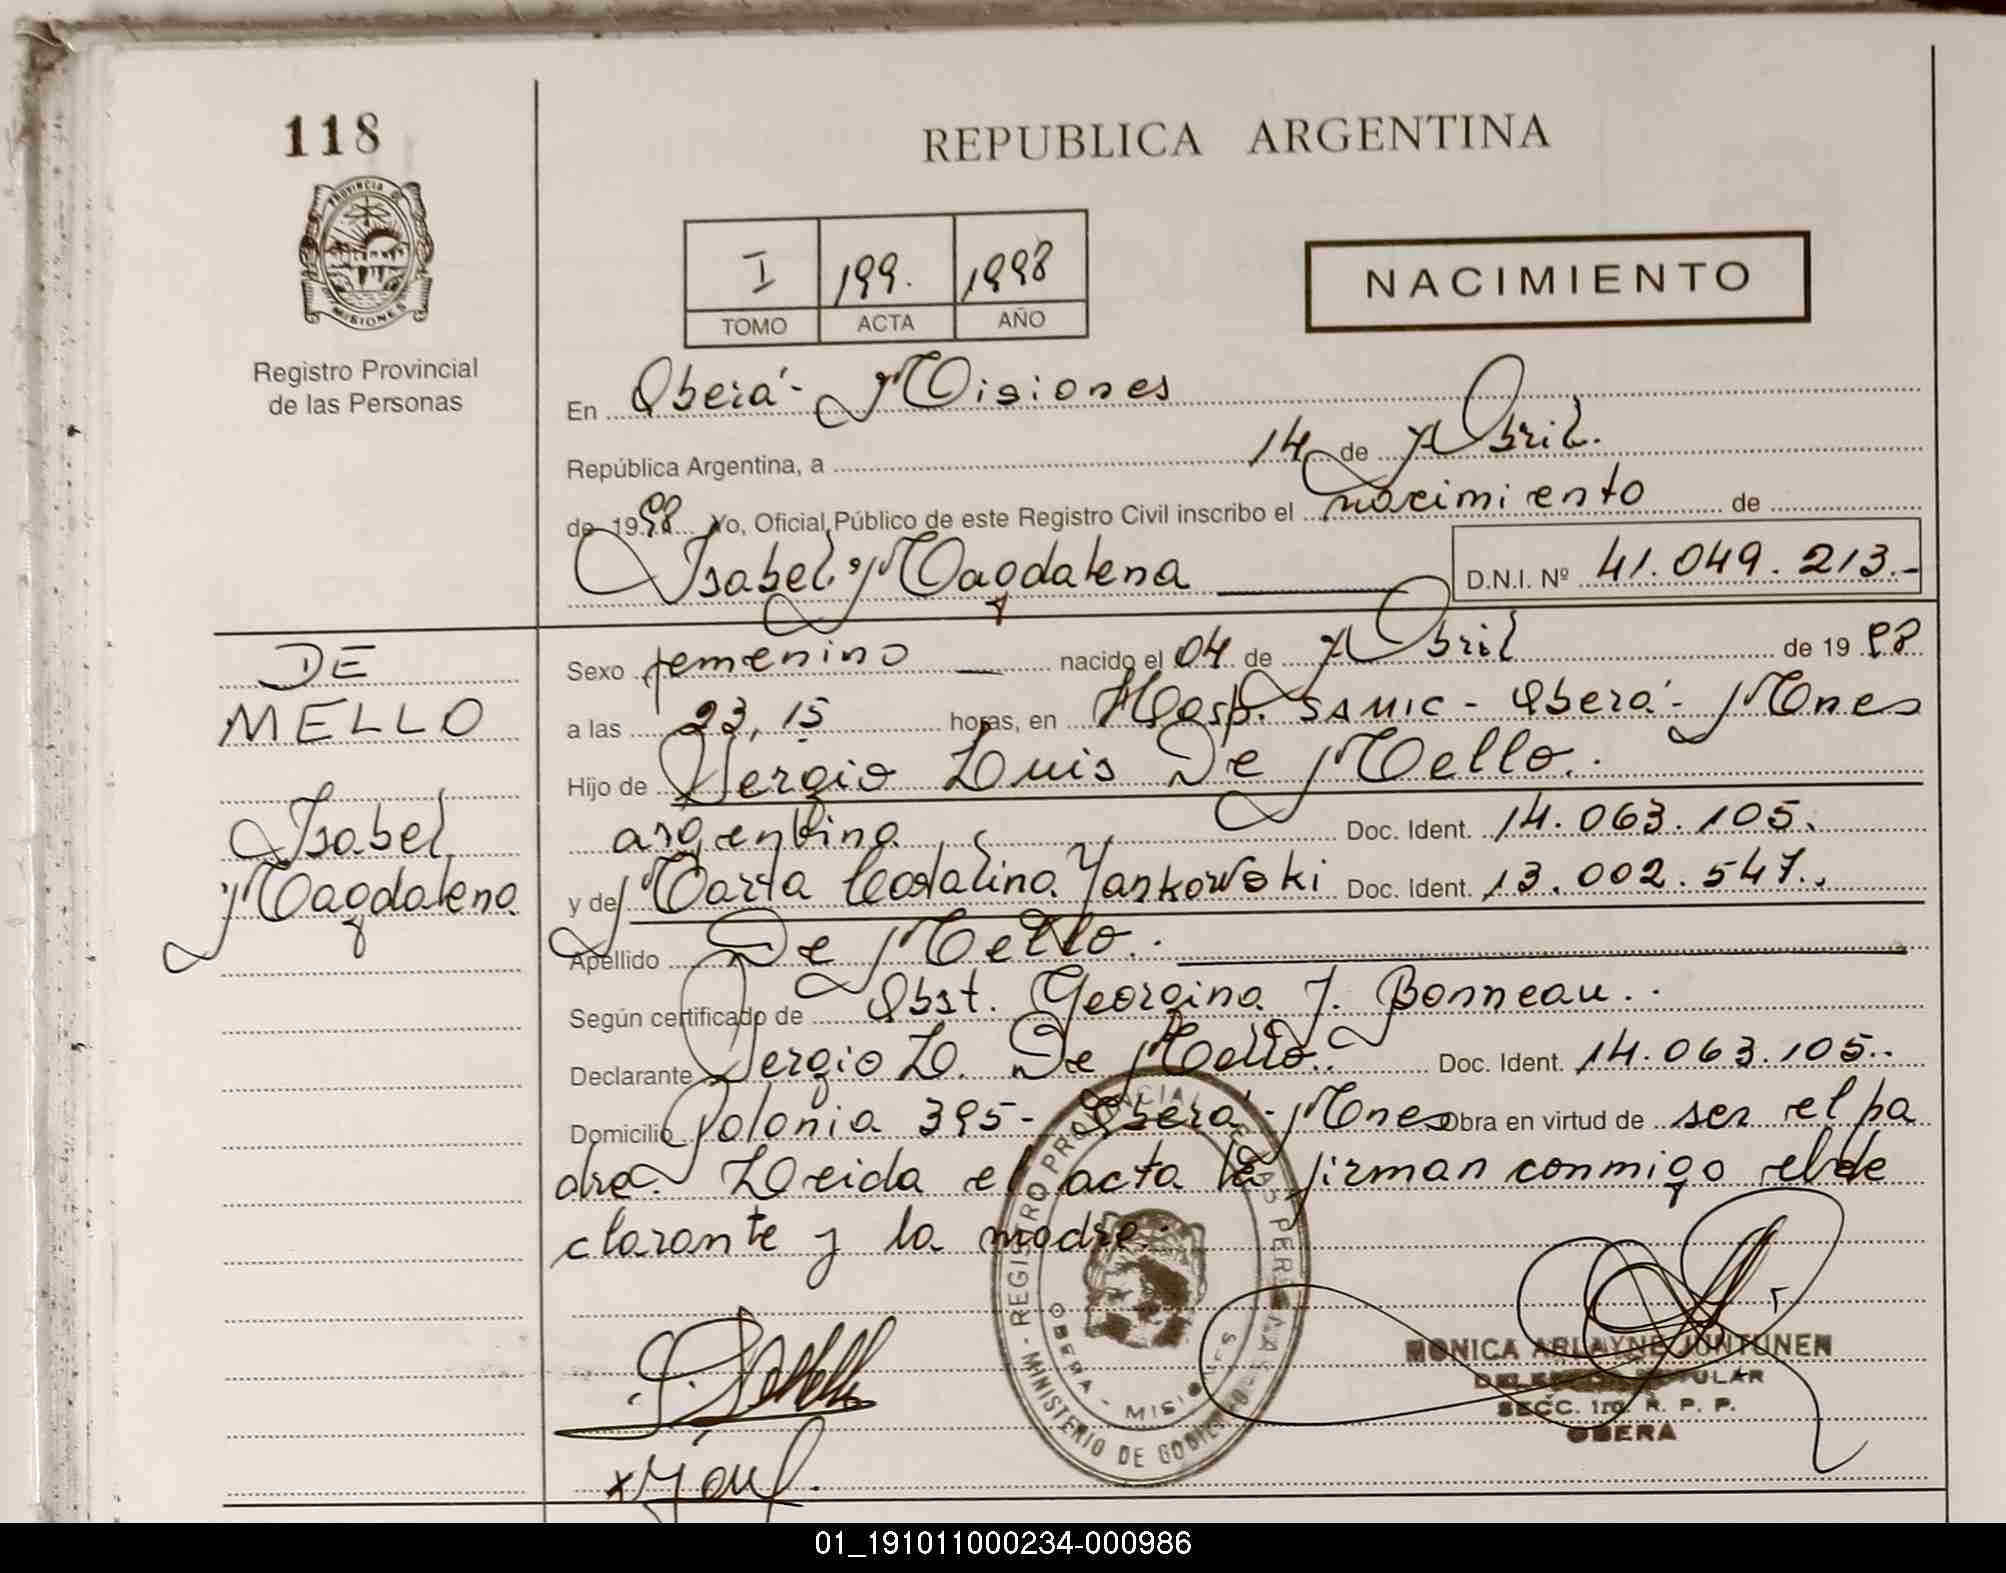 118
REPUBLICA ARGENTINA
PROVINCIA DE
MISIONES
I 199. 1998
TOMO ACTA AÑO
NACIMIENTO
Registro Provincial
de las Personas
En Oberá - Misiones
República Argentina, a 14 de Abril.
de 1998 Yo, Oficial Público de este Registro Civil inscribo el nacimiento de
Isabel Magdalena
D.N.I. Nº 41.049.213.-
DE
MELLO
Isabel
Magdalena
Sexo femenino nacido el 04 de Abril de 1998
a las 23,15 horas, en Hosp. SAMIC - Oberá - Mnes
Hijo de Sergio Luis De Mello.
argentino Doc. Ident. 14.063.105.
y de Marta Yankowski Doc. Ident. 13.002.547.
Apellido De Mello.
Según certificado de Obst. Georgina J. Bonneau.
Declarante Sergio L. De Mello. Doc. Ident. 14.063.105.
Domicilio Polonia 395 - Oberá - Mnes Obra en virtud de ser el pa
dre. Leida el acta la firman conmigo el de
clarante y la madre.
REGISTRO PROVINCIAL DE LAS PERSONAS
OBERA - MISIONES
MINISTERIO DE GOBIERNO
MONICA ARLAYNE JUNTUNEN
DELEGADA TITULAR
SECC. 1ra. R. P. P.
OBERA
01_191011000234-000986